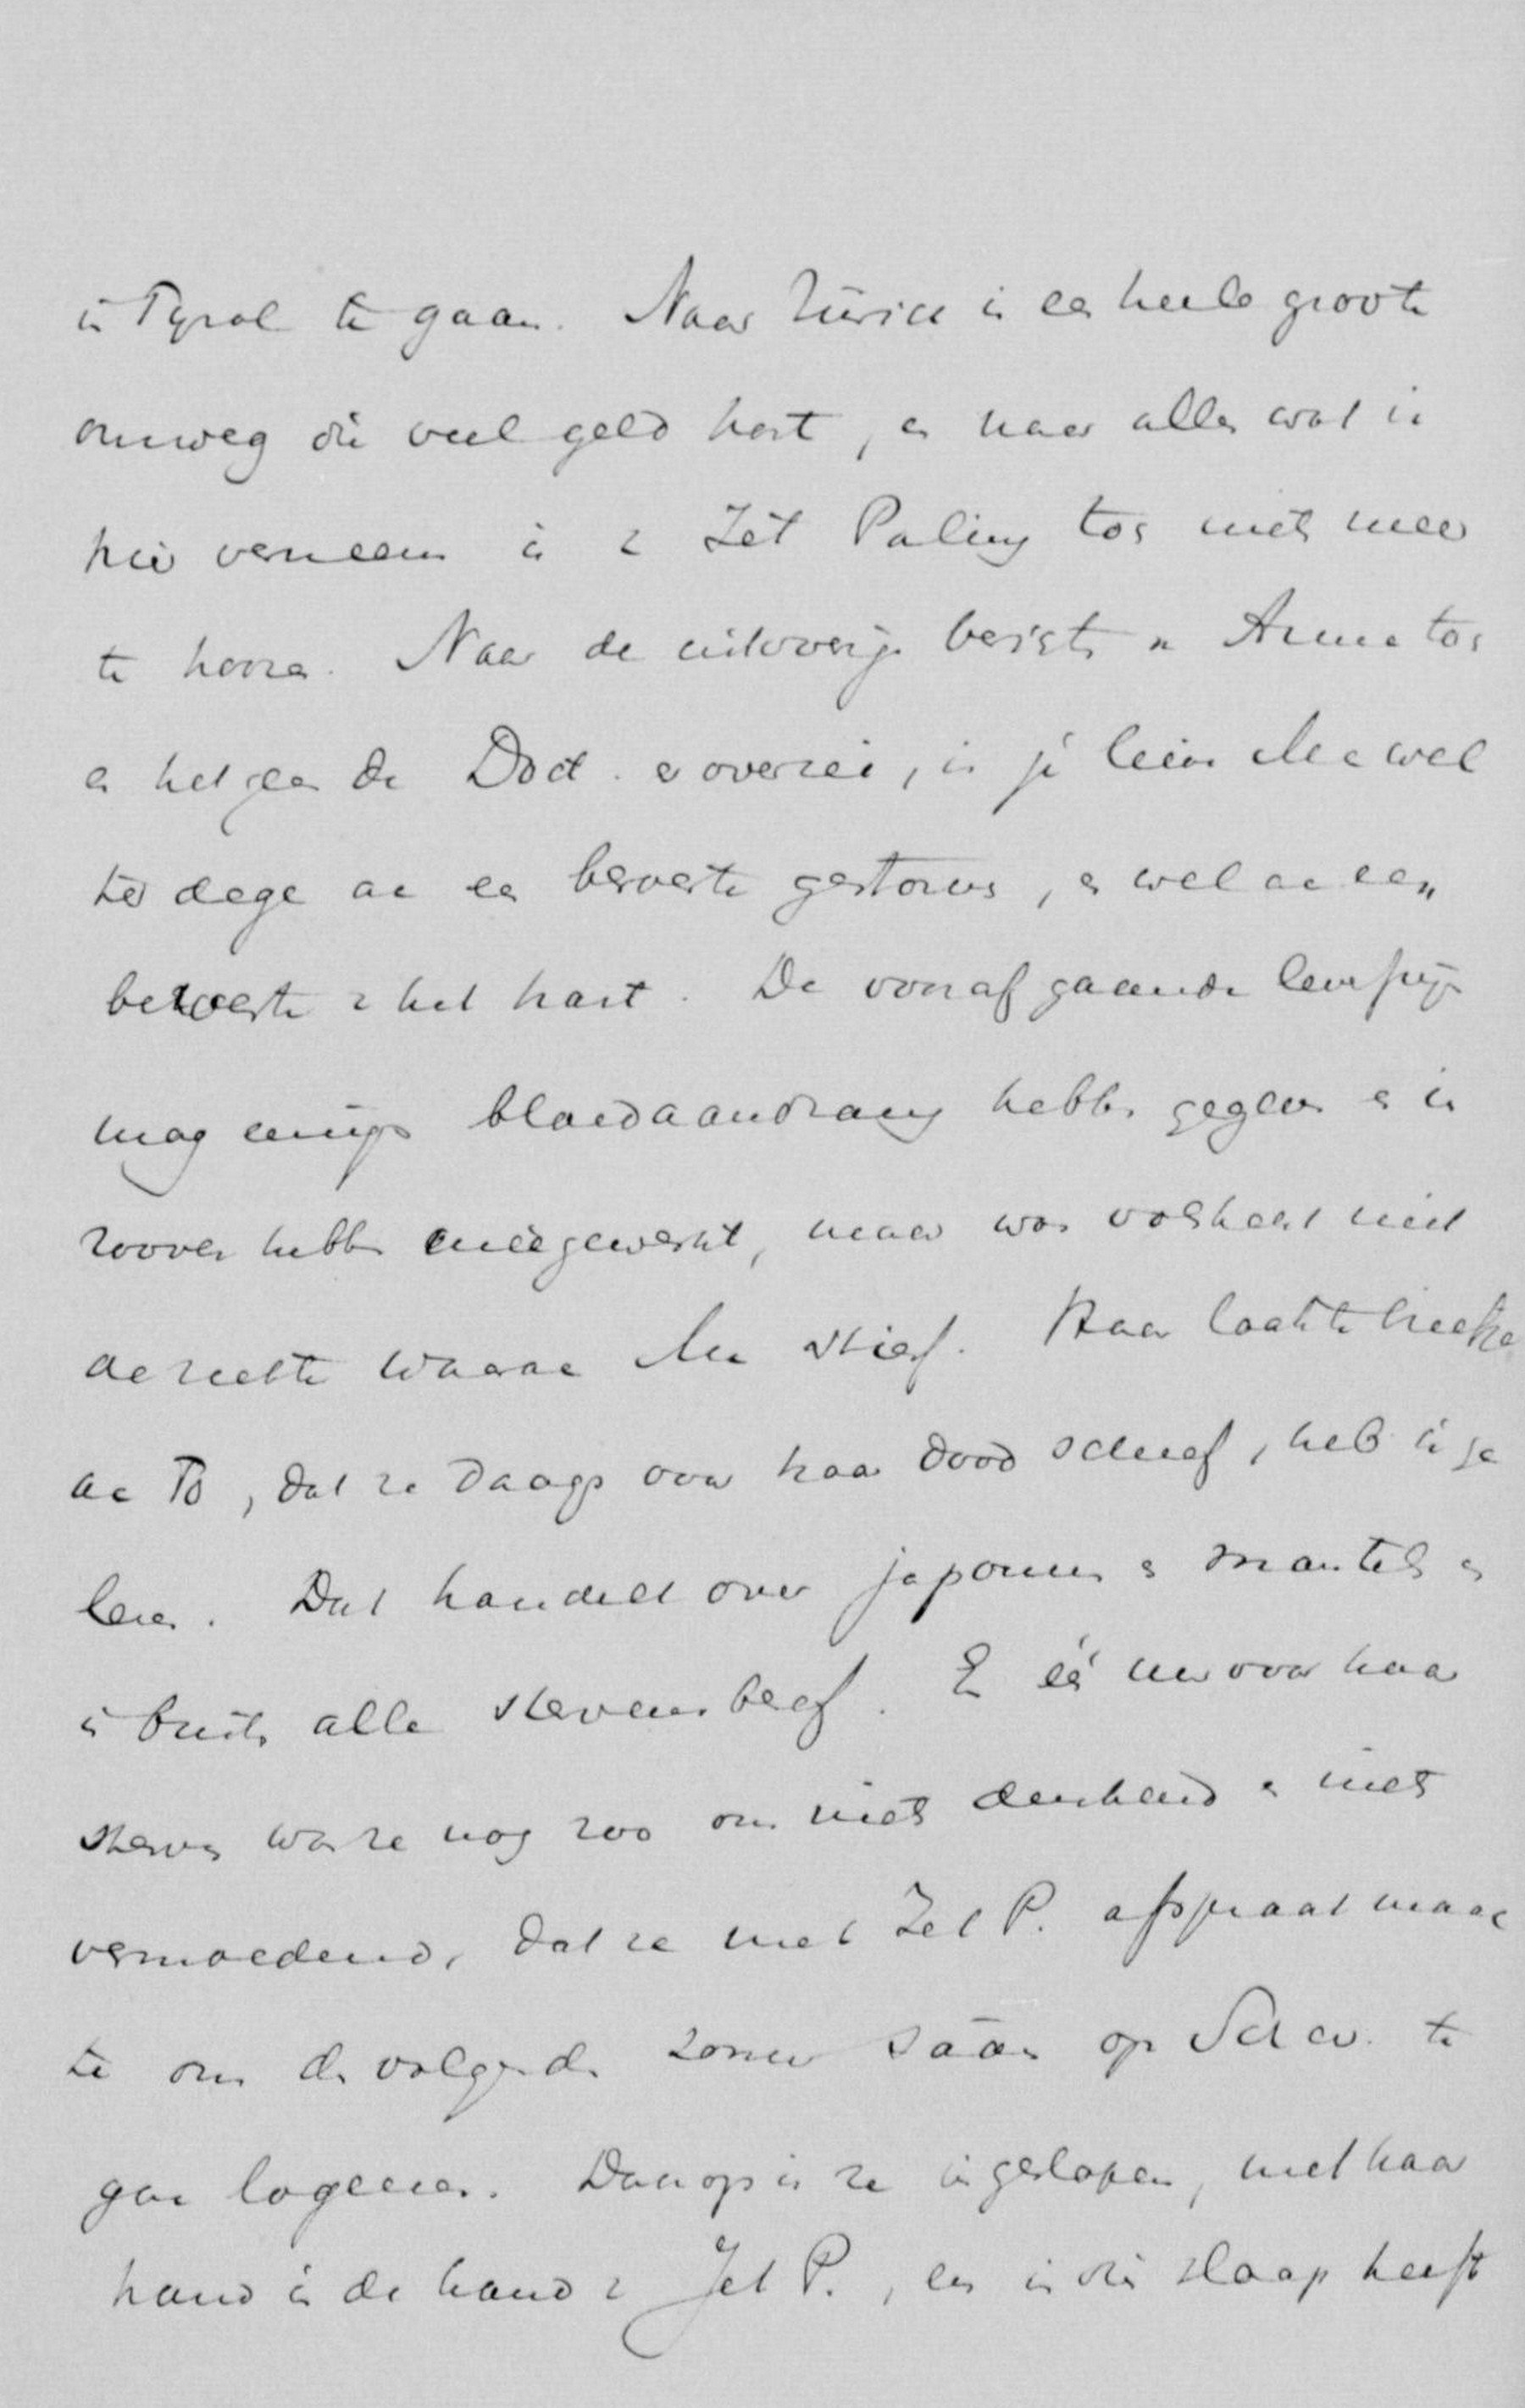 in Tyrol te gaan. Naar Zürich is een heele groote
omweg die veel geld kost, en naar alles wat ik
hier verneem is v Jet Paling toch niets meer
te hooren. Naar de uitvoerige berichten v Anne toch
en hetgeen de Doct. er over zei, is je lieve Moe wel
ter dege aan een beroerte gestorven, en wel aan een
beroerte v het hart. De voorafgaande
mag eenige bloedaandrang hebben gegeven en in
zoover hebben meegewerkt, maar was volstrekt niet
de ziekte waaraan Moe stierf. Haar laatste briefje
aan To, dat ze daags voor haar dood schreef, heb ik ge
lezen. Dat handelt over japonnen en mantels en
is buiten alle stervensbesef. En één uur voor haar
sterven was ze nog zoo om niets denkend en niets
vermoedend, dat ze met Jet P. afspraak maak
te om de volgende zomer sáám op Schev. te
gaan logeeren. Daarop is ze ingeslapen, met haar
hand in de hand v Jet P., en in die slaap heeft